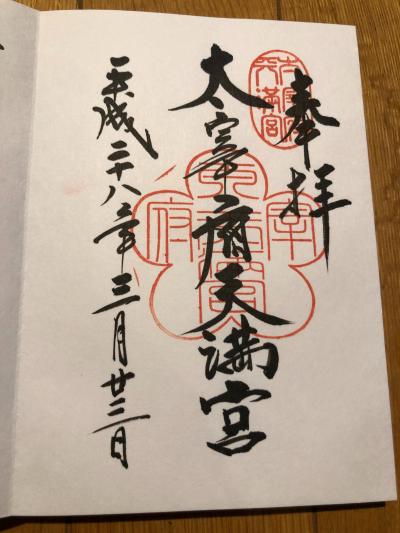 奉拝
太宰府天満宮
平成二十八年三月廿三日
太宰府
天満宮